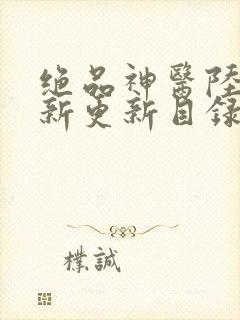 絶品神醫陸
新更新目錄
樸誠